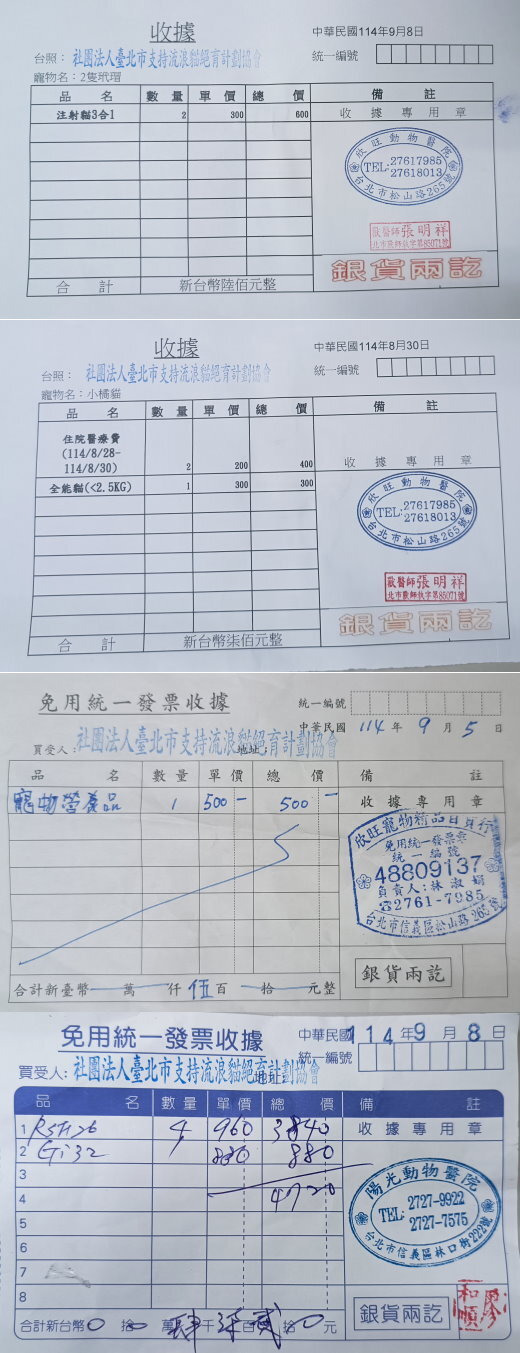 收據
中華民國114年9月8日
台照： 社團法人臺北市支持流浪貓絕育計劃協會
統一編號
寵物名：2隻玳瑁
品 名 數 量 單 價 總 價 備 註
注射貓3合1 2 300 600
收 據 專 用 章
欣旺動物醫院
TEL: 27617985
27618013
台北市松山路265號
獸醫師張明祥
北市獸師執字第85071號
銀貨兩訖
合 計 新台幣陸佰元整
收據
中華民國114年8月30日
台照： 社團法人臺北市支持流浪貓絕育計劃協會
統一編號
寵物名：小橘貓
品 名 數 量 單 價 總 價 備 註
住院醫療費
(114/8/28-
114/8/30) 2 200 400
收 據 專 用 章
全能貓(<2.5KG) 1 300 300
欣旺動物醫院
TEL: 27617985
27618013
台北市松山路265號
獸醫師張明祥
北市獸師執字第85071號
銀貨兩訖
合 計 新台幣柒佰元整
免用統一發票收據
統一編號
中華民國 114 年 9 月 5 日
買受人： 社團法人臺北市支持流浪貓絕育計劃協會
地址：
品 名 數 量 單 價 總 價 備 註
寵物營養品 1 500 500
收 據 專 用 章
欣旺寵物精品百貨行
免用統一發票票
統一編號
48809137
負責人：林淑娟
☎2761-7985
台北市信義區松山路265號
銀貨兩訖
合計新臺幣 萬 仟 伍 百 拾 元整
免用統一發票收據
中華民國 114 年 9 月 8 日
統一編號
買受人： 社團法人臺北市支持流浪貓絕育計劃協會
地址：
品 名 數 量 單 價 總 價 備 註
1 4 960 3840
收 據 專 用 章
2 Gi32 880 880
3
4 4720
5
6
7
8
陽光動物醫院
TEL: 2727-9922
2727-7575
台北市信義區林口街222號
銀貨兩訖
廖和順
合計新台幣 0 拾 0 萬 肆 千 柒 百 貳 拾 0 元